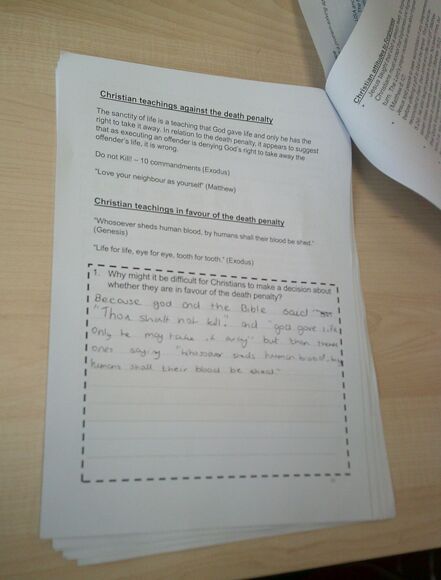 Christian teachings against the death penalty
The sanctity of life is a teaching that God gave life and only he has the
right to take it away. In relation to the death penalty, it appears to suggest
that as executing an offender is denying God's right to take away the
offender's life, it is wrong.
Do not Kill! – 10 commandments (Exodus)
"Love your neighbour as yourself" (Matthew)
Christian teachings in favour of the death penalty
"Whosoever sheds human blood, by humans shall their blood be shed."
(Genesis)
"Life for life, eye for eye, tooth for tooth." (Exodus)
1. Why might it be difficult for Christians to make a decision about
whether they are in favour of the death penalty?
Because god and the Bible said
"Thou shalt not kill." and "god gave life
only he may take it away" but then theres
ones saying "whosoever sheds human blood, by
humans shall their blood be shed."
Christian attitudes to